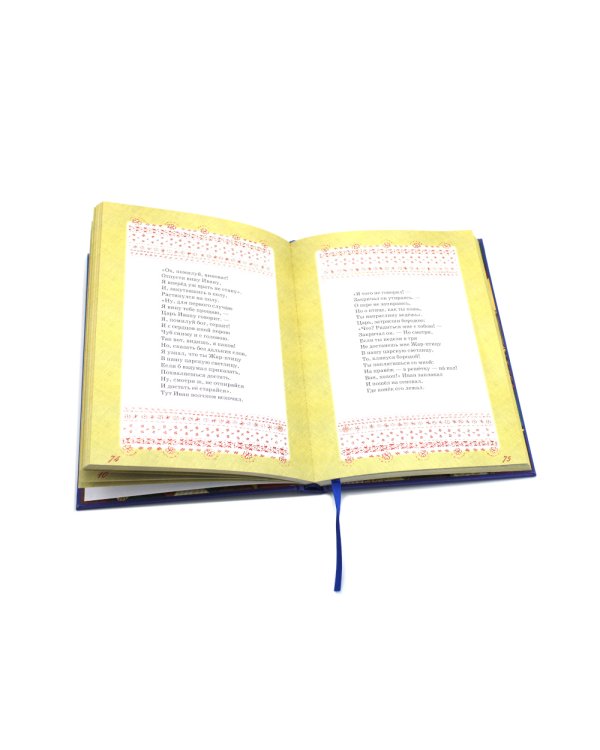 «Ох, помилуй, виноват!
Отпусти вину Ивану,
Я вперёд уж врать не стану».
И, закутавшись в полу,
Растянулся на полу.
«Ну, для первого случаю
Я вину тебе прощаю, —
Царь Ивану говорит. —
Я, помилуй бог, сердит!
И с сердцов иной порою
Чуб сниму и с головою.
Так вот, видишь, я каков!
Но, сказать без дальних слов,
Я узнал, что ты Жар-птицу
В нашу царскую светлицу,
Если б вздумал приказать,
Похваляешься достать.
Ну, смотри ж, не отпирайся
И достать её старайся».
Тут Иван волчком вскочил.
74
10
«Я того не говорил! —
Закричал он, утираясь. —
О ковре не запираюсь,
Но о птице, как ты хошь,
Ты напраслину ведёшь».
Царь, затрясши бородою:
«Что? Рядиться мне с тобою! —
Закричал он. — Но смотри,
Если ты недели в три
Не достанешь мне Жар-птицу
В нашу царскую светлицу,
То, клянуся бородой!
Ты поплатишься со мной:
На правёж — в решётку — на кол!
Вон, холоп!» Иван заплакал
И пошёл на сеновал,
Где конёк его лежал.
75